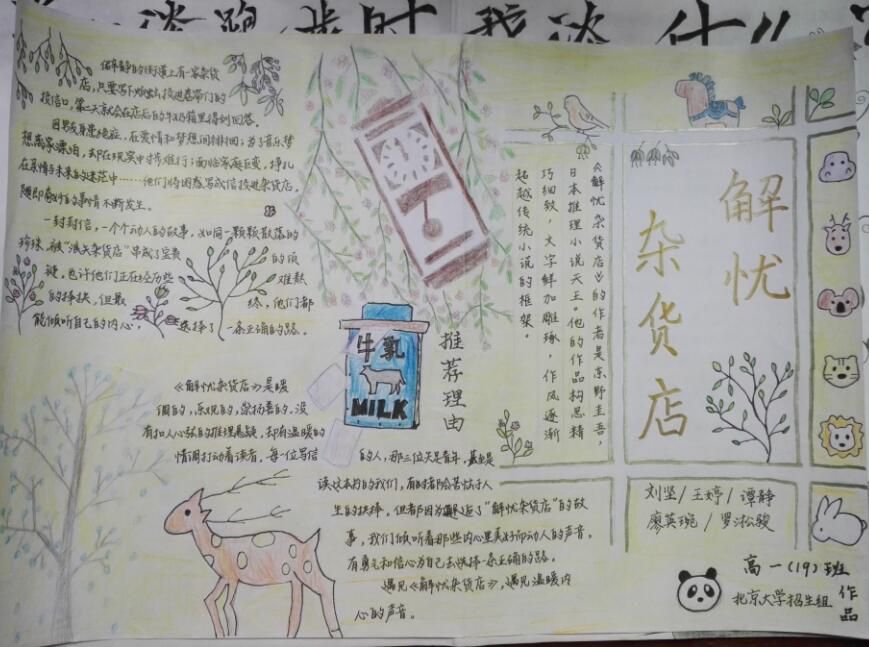 僻静的街道上有一家杂货
店,只要写下烦恼投进卷帘门的
投信口,第二天就会在店后的牛奶箱里得到回答。
因男友身患绝症,在爱情和梦想间徘徊;为了音乐梦
想离家漂泊,却在现实中寸步难行;面临家庭巨变,挣扎
在亲情与未来的迷茫中……他们将困惑写成信投进杂货店,
随即奇妙的事情不断发生。
一封封信,一个个动人的故事,如同一颗颗散落的
珍珠,被“浪矢杂货店”串成了宝贵的项
链,也许他们正在经历些难熬
的抉择,但最终,他们都
能倾听自己的内心,选择了一条正确的路。
牛乳
MILK
推荐理由
《解忧杂货店》是暖
调的,乐观的,崇扬善的。没
有扣人心弦的推理悬疑,却有温暖的
情调打动着读者。每一位写信的人,那三位失足青年,甚至是
读这本书的我们,有时都会苦恼于人
生的抉择。但都因为邂逅了“解忧杂货店”的故
事,我们倾听着那些内心里美好而动人的声音,
有勇气和信心为自己去选择一条正确的路。
遇见《解忧杂货店》,遇见温暖内
心的声音。
《解忧杂货店》的作者是东野圭吾,
日本推理小说天王。他的作品构思精
巧细致,文字鲜加雕琢,作风逐渐
超越传统小说的框架。
解忧
杂货店
刘坚/王婷/谭静
廖英琬/罗淞骏
高一(19)班
北京大学招生组
作品